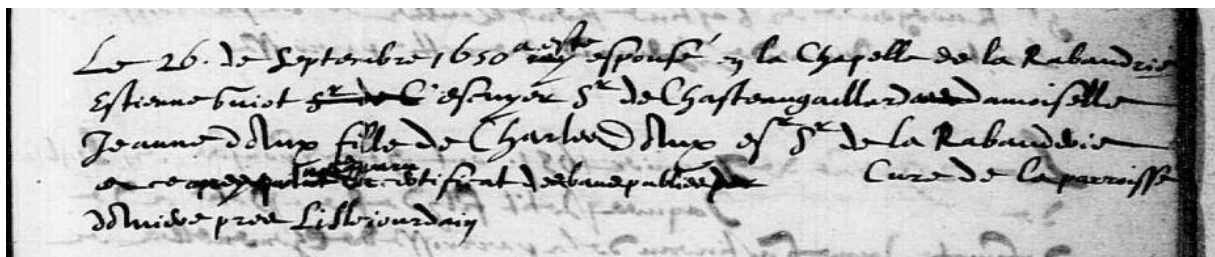 Le 26. de Septembre 1650 a esté espousé en la Chapelle de la Rabaudrie
Estienne Guiot escuyer Sr de Chasteaugaillard avec damoiselle
Jeanne d'Aux fille de Charles d'Aux esr Sr de la Rabauderie
et ce certificat des bans publies par Curé de la parroisse
pres Lisle jourdain